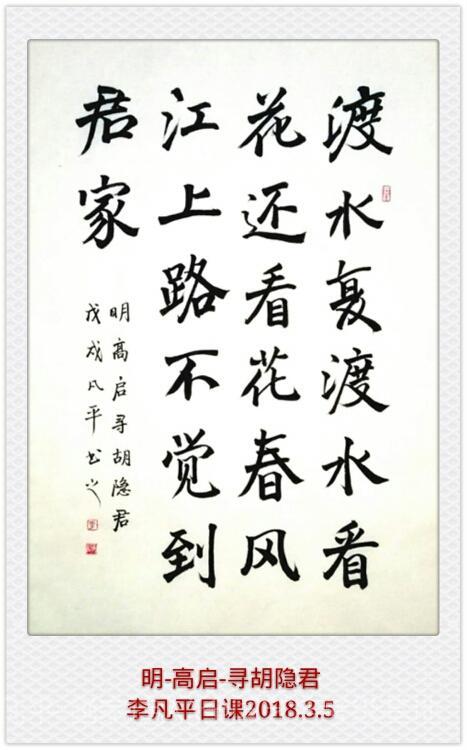 渡水复渡水看
花还看花春风
江上路不觉到
君家
明高启寻胡隐君
戊戌凡平书之
明-高启-寻胡隐君
李凡平日课2018.3.5